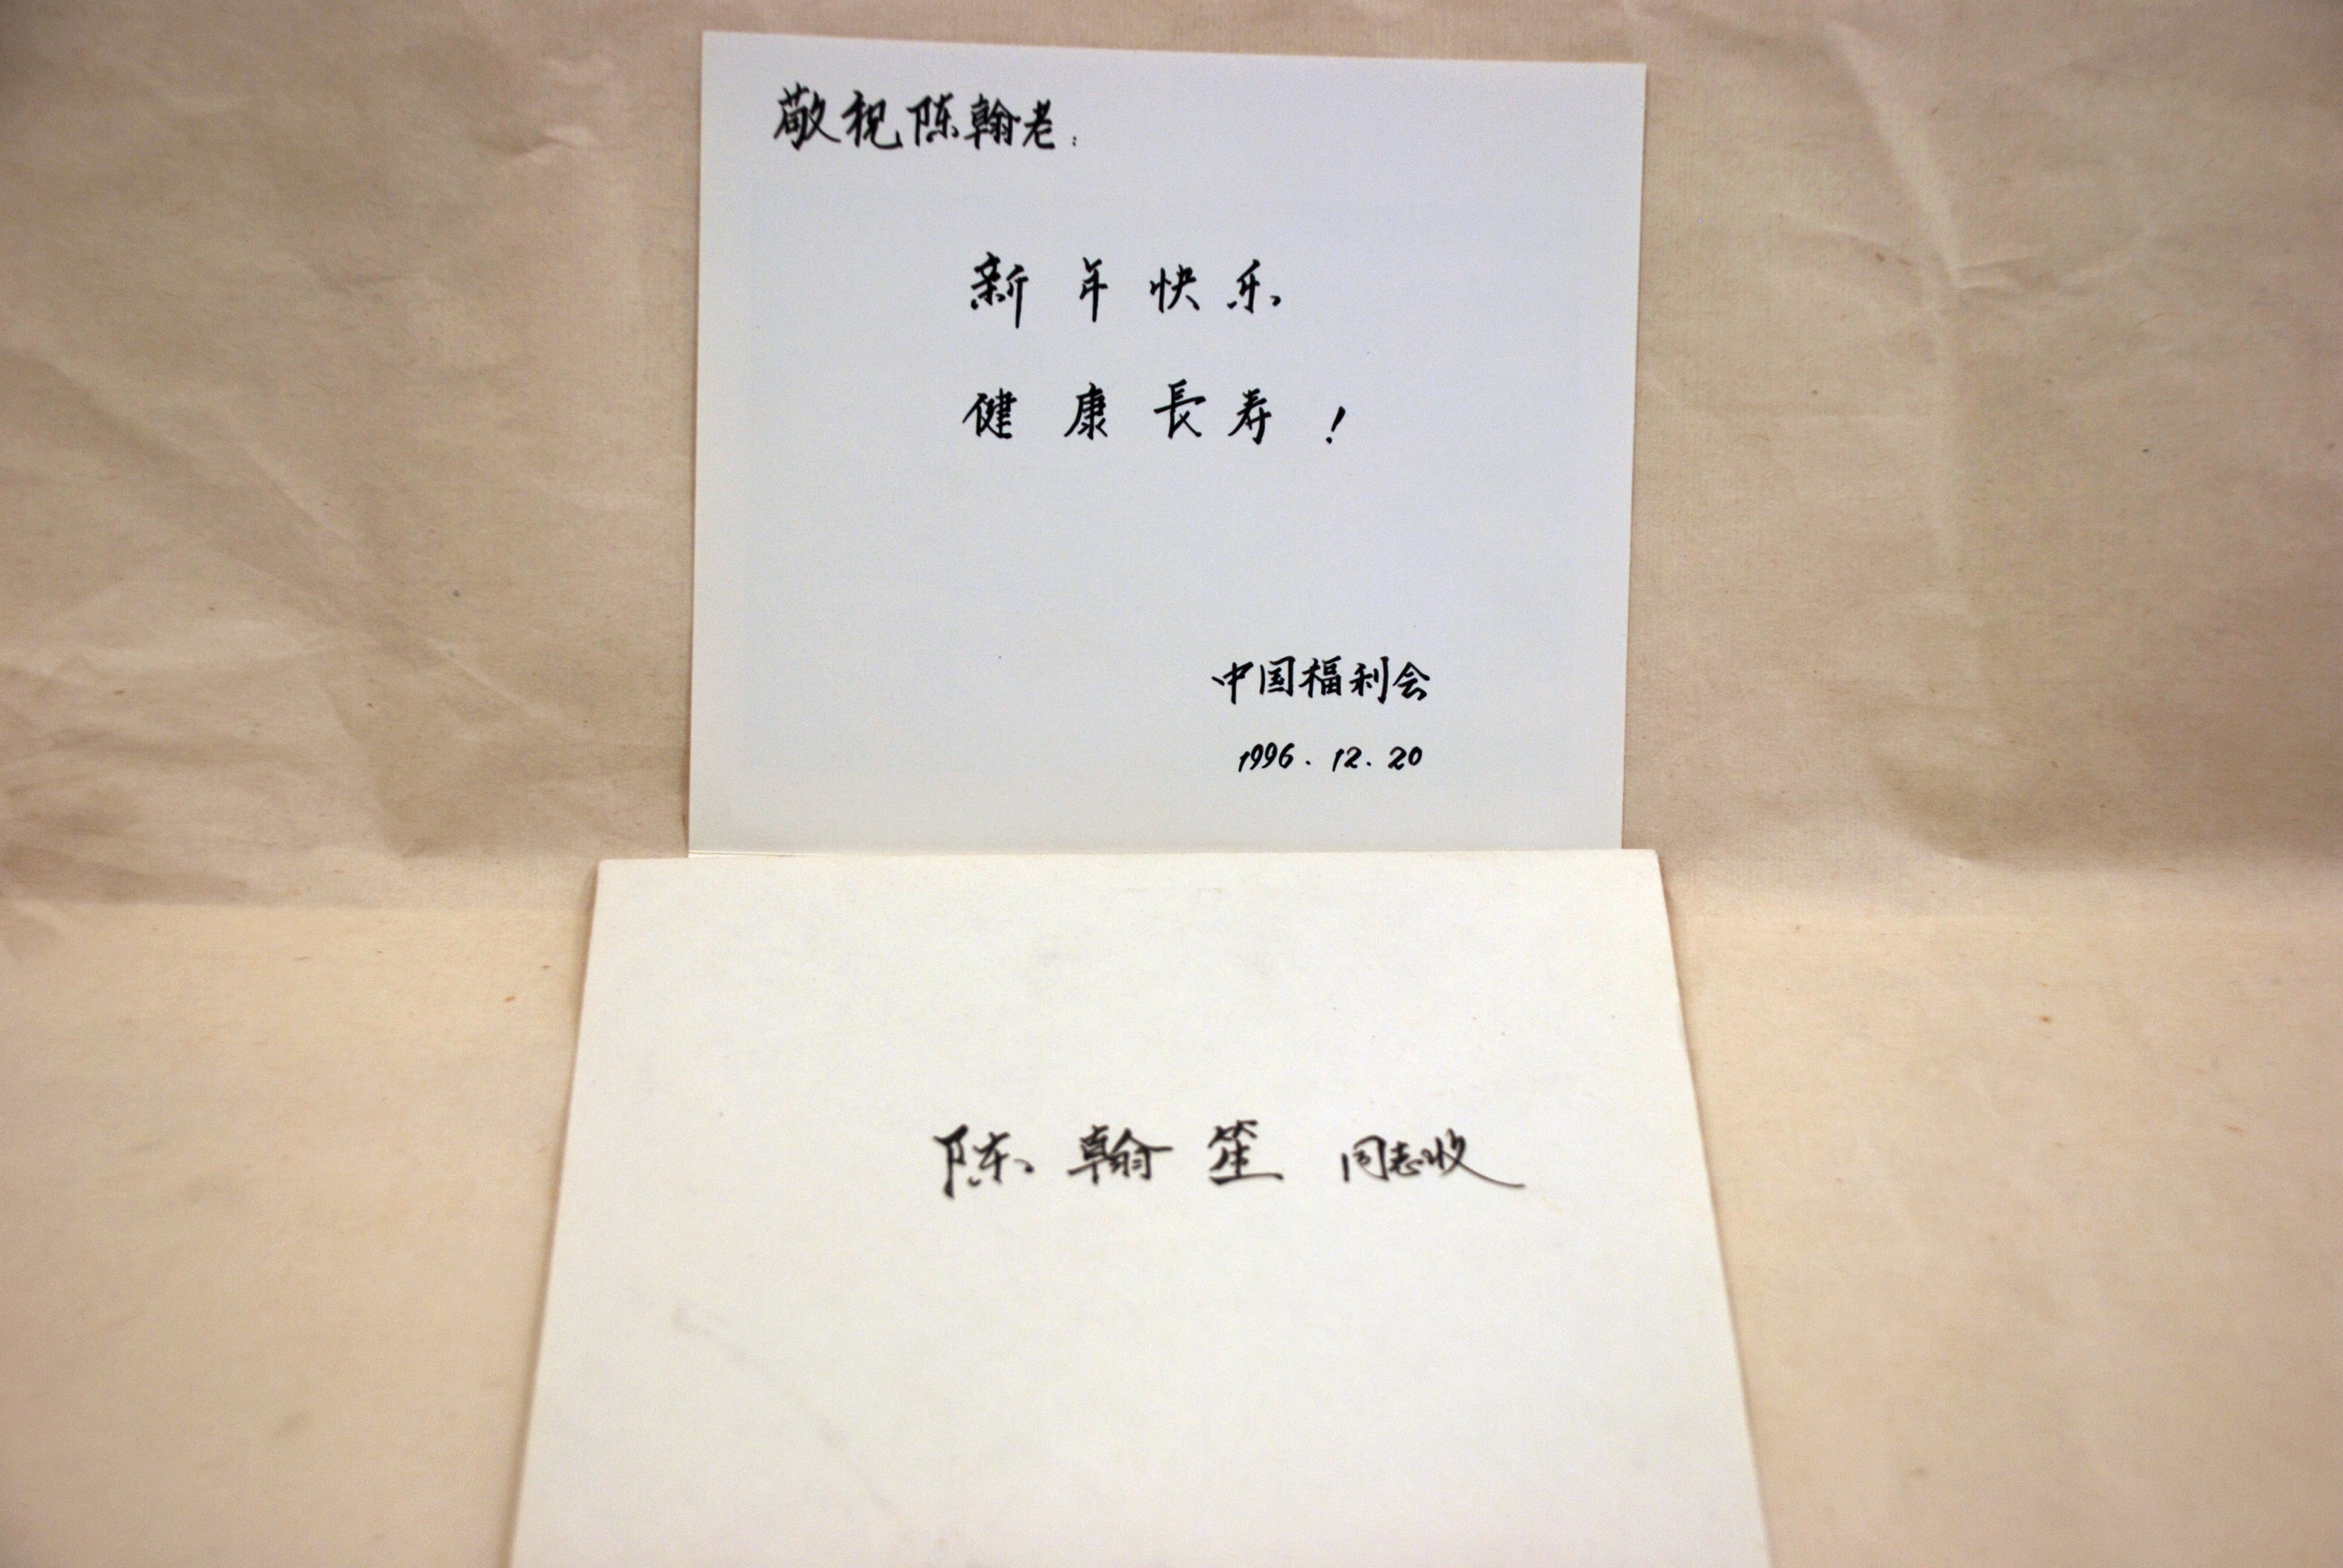 敬祝陈翰老:
新年快乐
健康長寿!
中国福利会
1996.12.20
陈翰笙 同志收